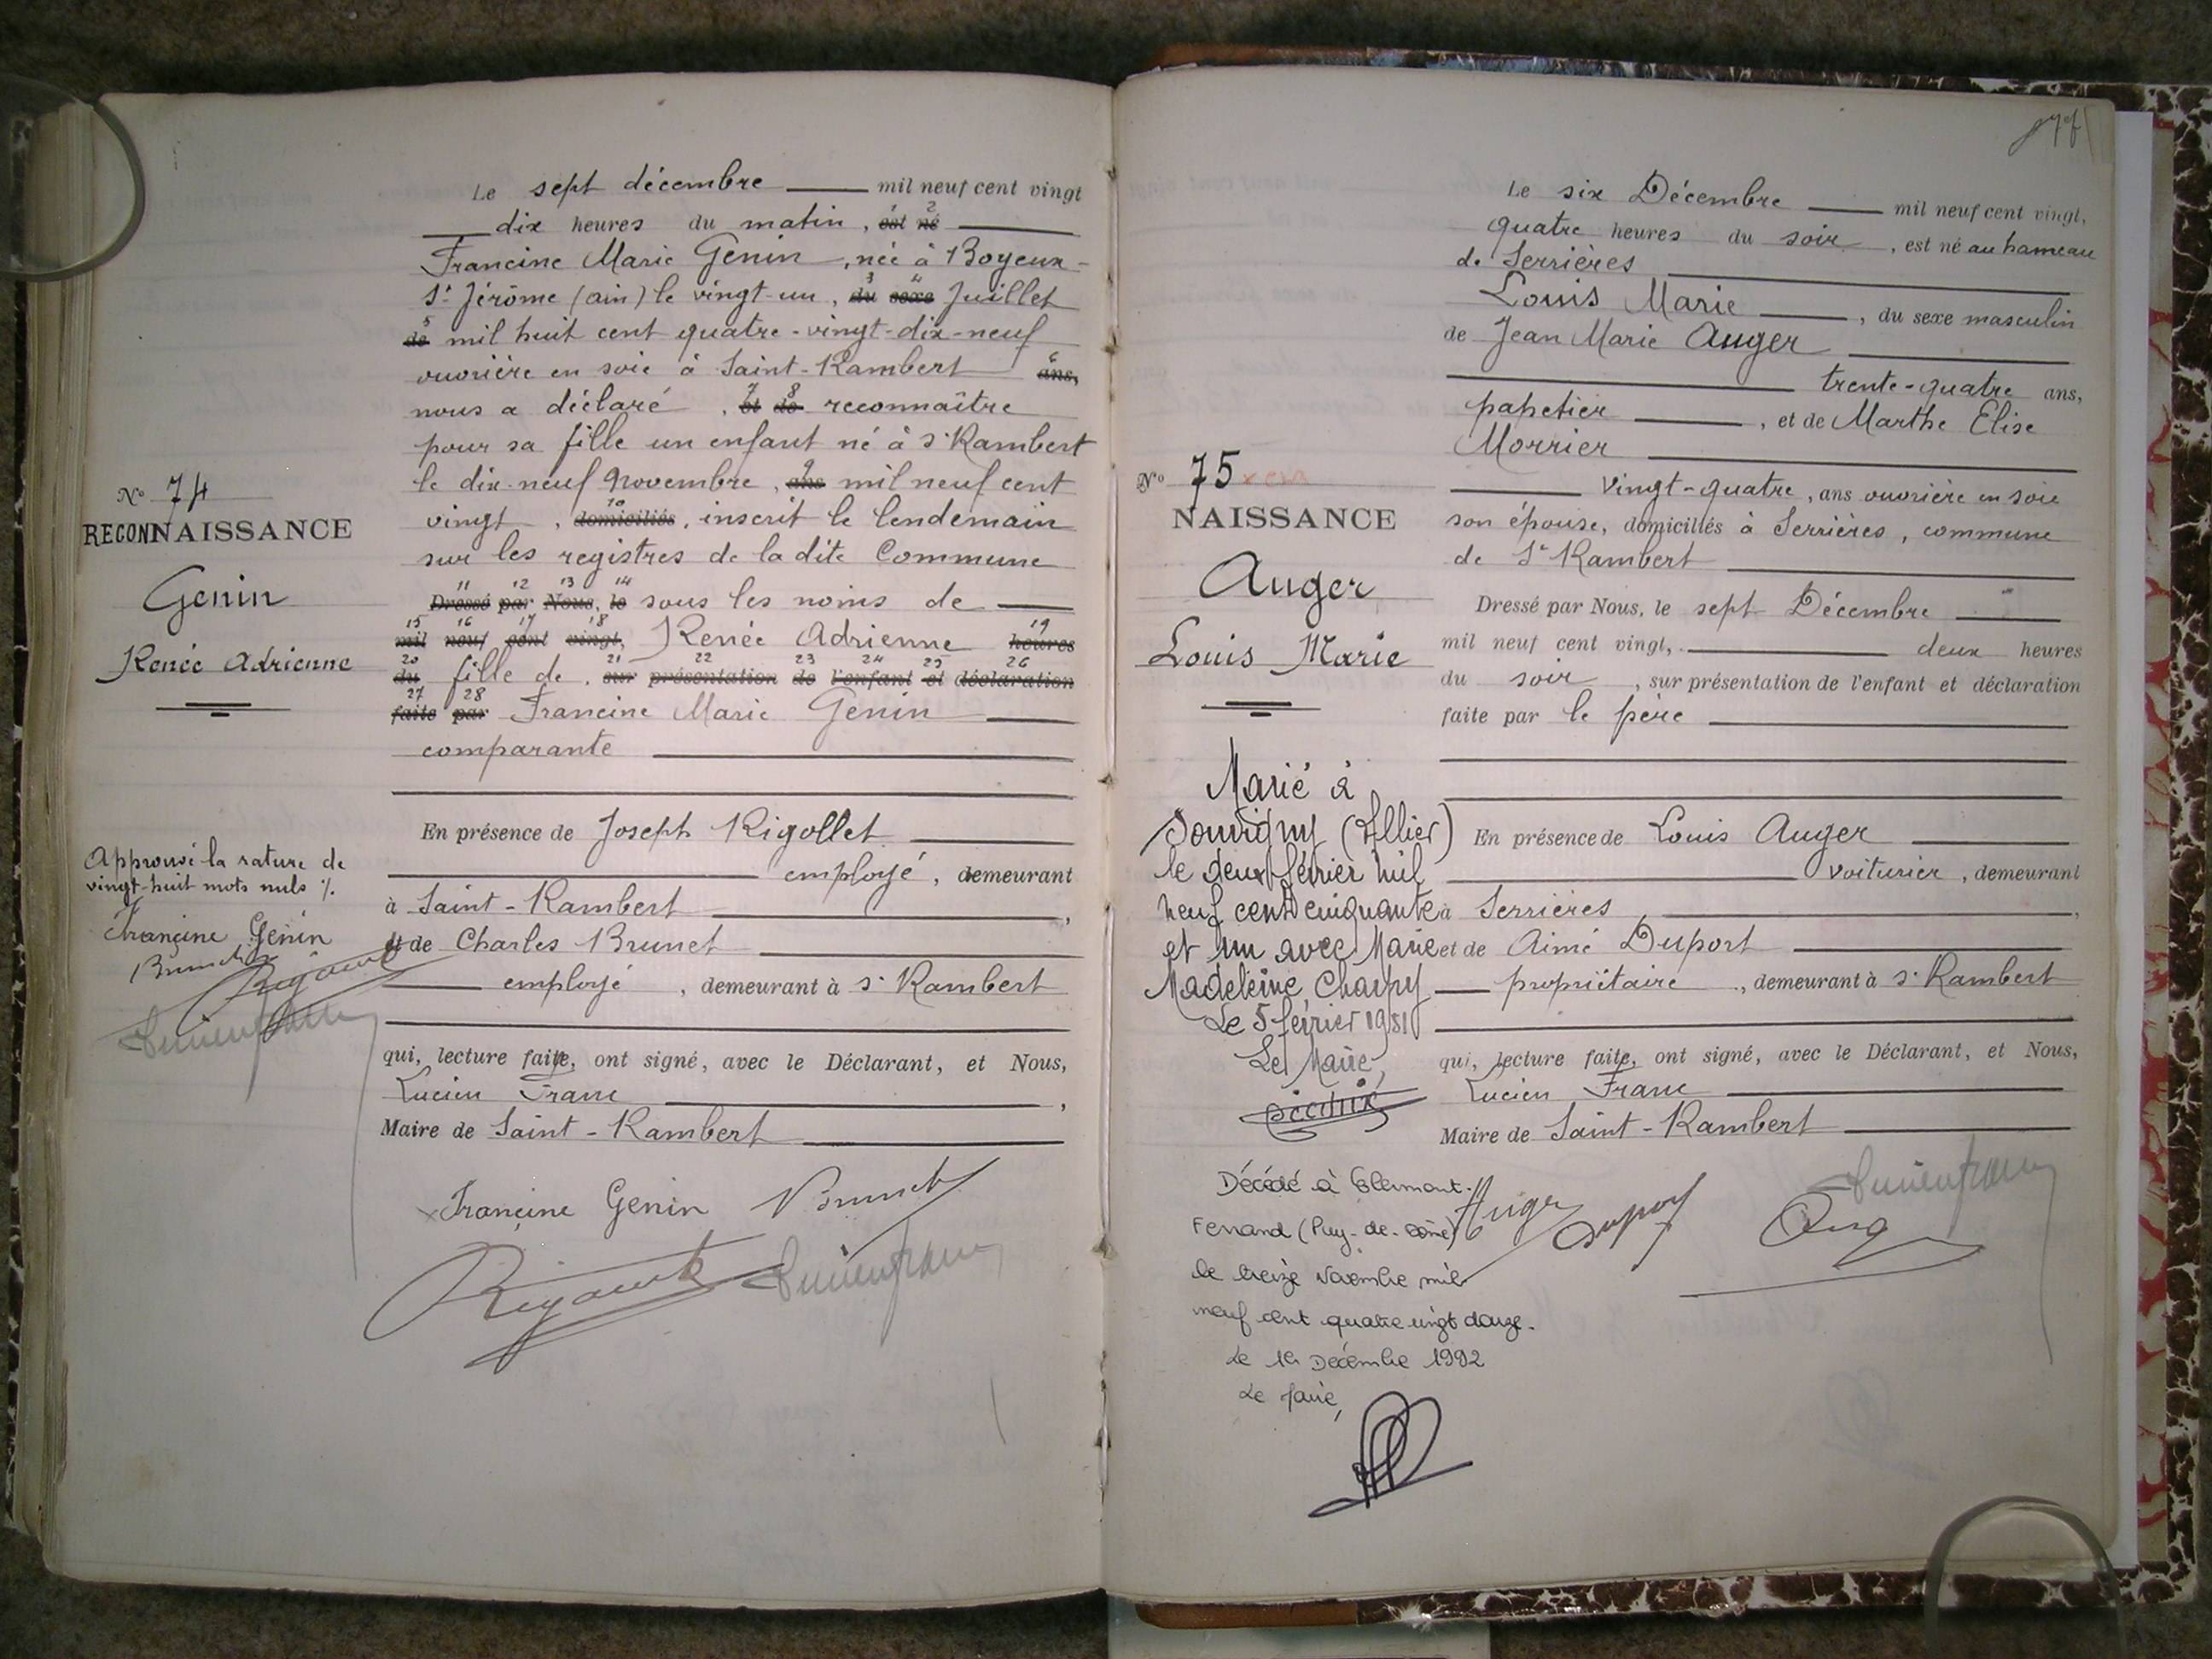 Le sept décembre mil neuf cent vingt
dix heures du matin, est né
1 2
Francine Marie Genin, née à Boyeux-
St Jérôme (ain) le vingt-un, du sexe Juillet
3 4
de mil huit cent quatre-vingt-dix-neuf
5
ouvrière en soie à Saint-Rambert ans,
6
nous a déclaré, et de reconnaître
7 8
pour sa fille un enfant né à St Rambert
le dix-neuf Novembre, ans mil neuf cent
vingt, domiciliés, inscrit le lendemain
10
sur les registres de la dite Commune
11 12 13 14
Dressé par Nous, le sous les noms de
15 16 17 18 19
mil neuf cent vingt, Renée Adrienne heures
20 21 22 23 24 25 26
du fille de, sur présentation de l'enfant et déclaration
27 28
faite par Francine Marie Genin
comparante
En présence de Joseph Rigollet
employé, demeurant
à Saint-Rambert,
et de Charles Brunet
employé, demeurant à St Rambert
qui, lecture faite, ont signé, avec le Déclarant, et Nous,
Lucien Franc,
Maire de Saint-Rambert
Francine Genin Brunet
Lucien Franc
No 74
RECONNAISSANCE
Genin
Renée Adrienne
Approuvé la rature de
vingt-huit mots nuls
Francine Genin
Brunet
Lucien Franc
Le six Décembre mil neuf cent vingt,
quatre heures du soir, est né au hameau
de Serrières
Louis Marie, du sexe masculin
de Jean Marie Auger
trente-quatre ans,
papetier, et de Marthe Elise
Morrier
vingt-quatre, ans ouvrière en soie
son épouse, domiciliés à Serrières, commune
de St Rambert
Dressé par Nous, le sept Décembre
mil neuf cent vingt, deux heures
du soir, sur présentation de l'enfant et déclaration
faite par le père
En présence de Louis Auger
voiturier, demeurant
à Serrières,
et de Aimé Duport
propriétaire, demeurant à St Rambert
qui, lecture faite, ont signé, avec le Déclarant, et Nous,
Lucien Franc
Maire de Saint-Rambert
Auger Duport Lucien Franc
Aug
No 75
NAISSANCE
Auger
Louis Marie
Marié à
Souvigny (Allier)
le deux février mil
neuf cent cinquante
et un avec Marie
Madeleine Charpy
Le 5 février 1951
Le Maire,
Décédé à Clermont-
Ferrand (Puy-de-Dôme)
le treize Novembre mil
neuf cent quatre vingt douze.
Le 1er Décembre 1992
Le Maire,